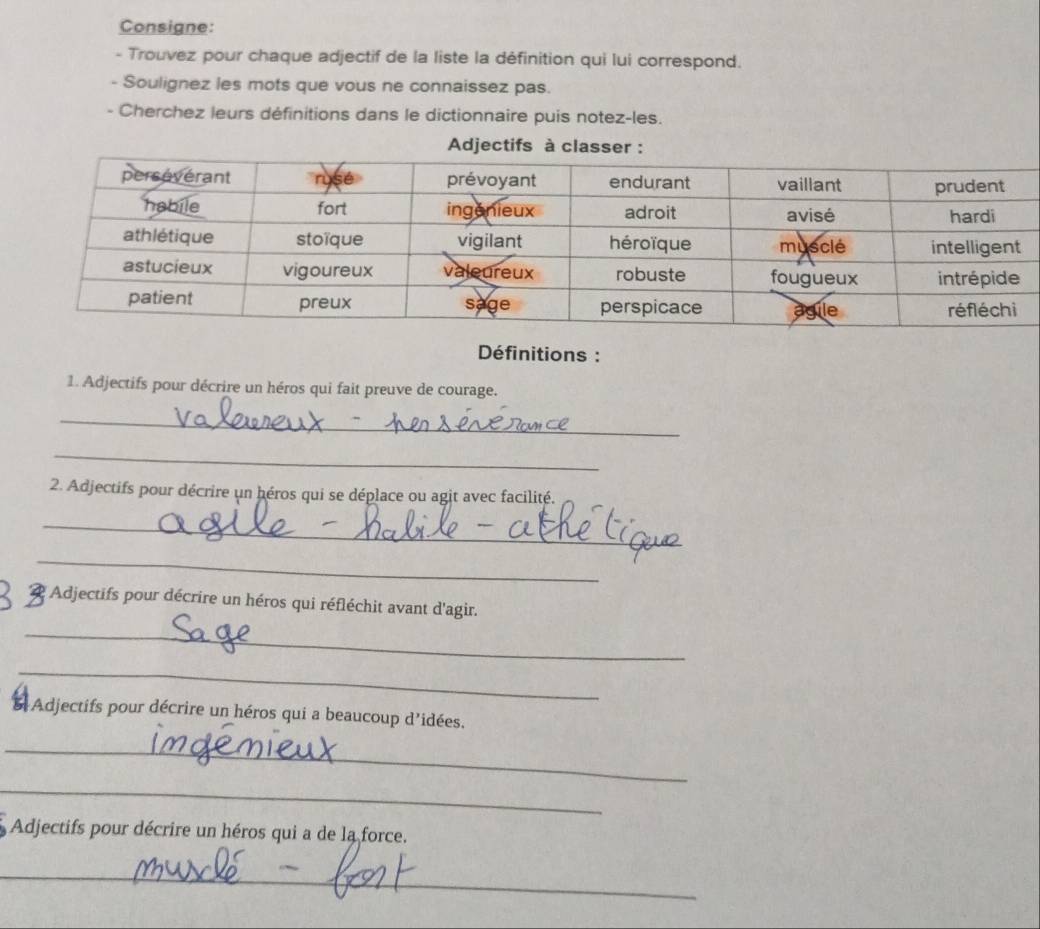 Consigne:
- Trouvez pour chaque adjectif de la liste la définition qui lui correspond.
- Soulignez les mots que vous ne connaissez pas.
- Cherchez leurs définitions dans le dictionnaire puis notez-les.
Adjectifs à classer :
persévérant rusé prévoyant endurant vaillant prudent
habile fort ingénieux adroit avisé hardi
athlétique stoïque vigilant héroïque musclé intelligent
astucieux vigoureux valeureux robuste fougueux intrépide
patient preux sage perspicace agile réfléchi
Définitions :
1. Adjectifs pour décrire un héros qui fait preuve de courage.
valeureux - persévérance
2. Adjectifs pour décrire un héros qui se déplace ou agit avec facilité.
agile - habile - athétique
3 Adjectifs pour décrire un héros qui réfléchit avant d'agir.
Sage
4 Adjectifs pour décrire un héros qui a beaucoup d'idées.
ingénieux
Adjectifs pour décrire un héros qui a de la force.
musclé - fort